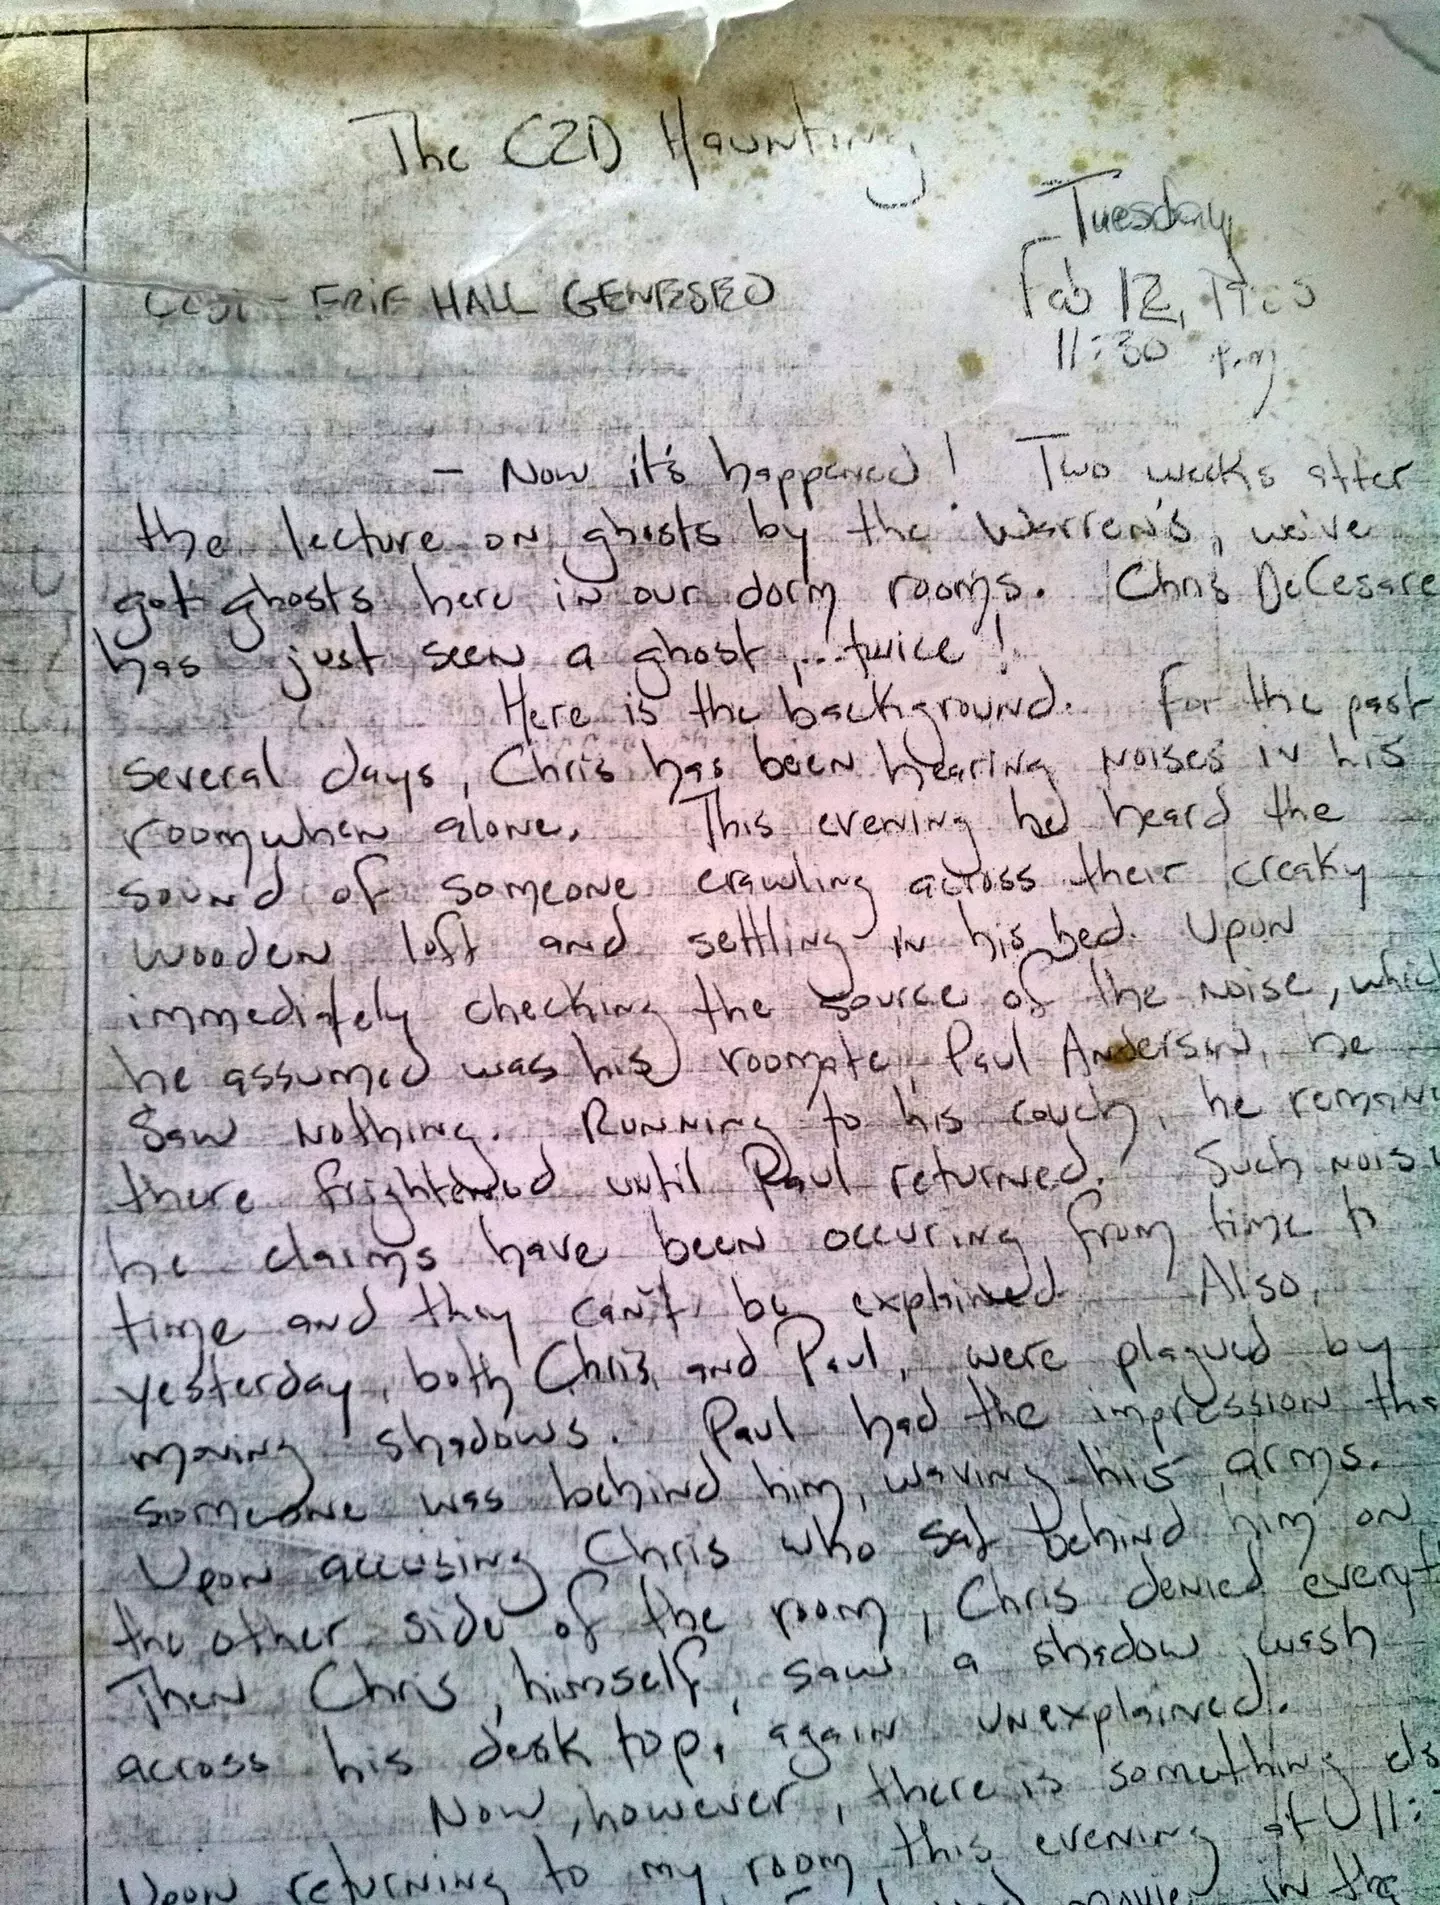 The C2D Haunting
Tuesday
Feb 12,
11:30 p.m
ERIE HALL GENESEO
- Now it's happened! Two weeks after
the lecture on ghosts by the Warren's, we've
got ghosts here in our dorm rooms. Chris DeCesare
has just seen a ghost,...twice!
Here is the background. For the past
several days, Chris has been hearing noises in his
room when alone. This evening he heard the
sound of someone crawling across their creaky
wooden loft and settling in his bed. Upon
immediately checking the source of the noise, which
he assumed was his roomate, Paul Anderson, he
saw nothing. Running to his couch, he
there frightened until Paul returned. Such
he claims have been occuring from time to
time and they can't be explained Also,
yesterday, both Chris and Paul, were plagued by
moving shadows. Paul had the impression
someone was behind him, waving his arms.
Upon accusing Chris who sat behind him on
the other side of the room, Chris denied everyt
Then Chris, himself, saw a shadow wash
across his desk top, again unexplained.
Now, however, there is something els
Upon returning to my room this evening at 11:
in the